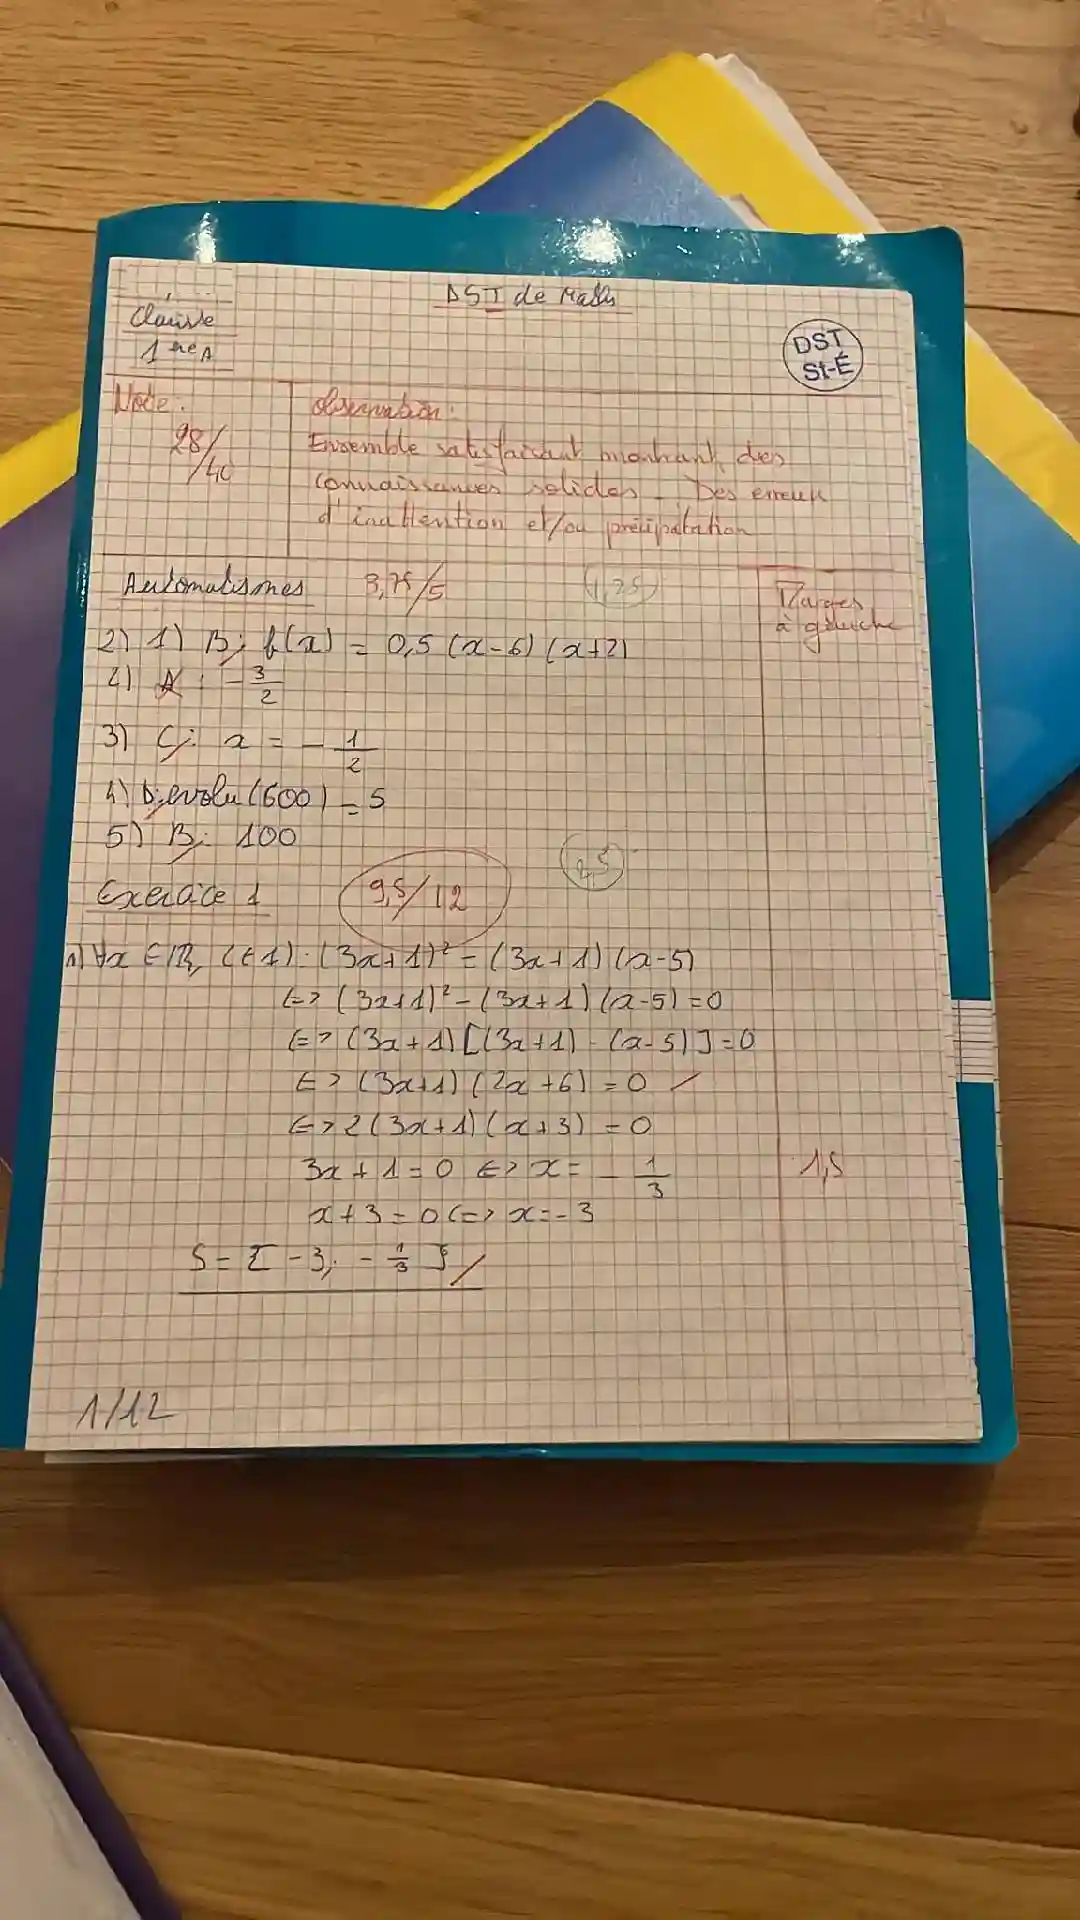 DST de Maths
Clarisse
1ère A
DST
St-É
Note:
28/40
Observation:
Ensemble satisfaisant montrant des
connaissances solides. Des erreurs
d'inattention et/ou précipitation
Automatismes 3,75/5 1,25
Marges
à gauche
2) 1) B; f(x) = 0,5 (x-6) (x+2)
2) A : -3/2
3) C; x = -1/2
4) D; evolu(600) = 5
5) B; 100
Exercice 1 9,5/12 2,5
1) ∀x ∈ ℝ, (E1) : (3x+1)² = (3x+1)(x-5)
<=> (3x+1)² - (3x+1)(x-5) = 0
<=> (3x+1)[(3x+1) - (x-5)] = 0
<=> (3x+1)(2x+6) = 0
<=> 2(3x+1)(x+3) = 0
3x+1 = 0 <=> x = -1/3 1,5
x+3 = 0 <=> x = -3
S = { -3; -1/3 }
1/12